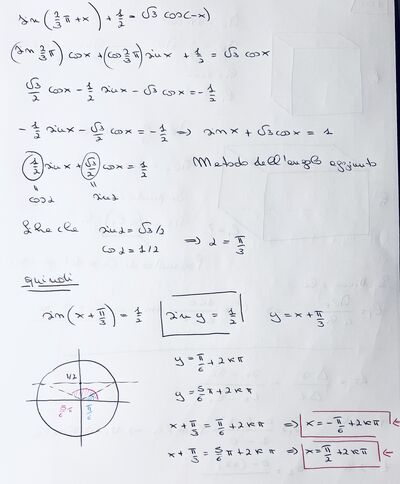 sin(2/3 π + x) + 1/2 = √3 cos(-x)
(sin 2/3 π) cos x + (cos 2/3 π) sin x + 1/2 = √3 cos x
√3/2 cos x - 1/2 sin x - √3 cos x = - 1/2
- 1/2 sin x - √3/2 cos x = - 1/2 ⇒ sin x + √3 cos x = 1
1/2 sin x + √3/2 cos x = 1/2 Metodo dell'angolo aggiunto
= =
cos α sin α
che sin α = √3/2
cos α = 1/2 ⇒ α = π/3
quindi
sin(x + π/3) = 1/2 sin y = 1/2 y = x + π/3
1/2
π/6
y = π/6 + 2kπ
y = 5/6 π + 2kπ
x + π/3 = π/6 + 2kπ ⇒ x = - π/6 + 2kπ ←
x + π/3 = 5/6 π + 2kπ ⇒ x = π/2 + 2kπ ←